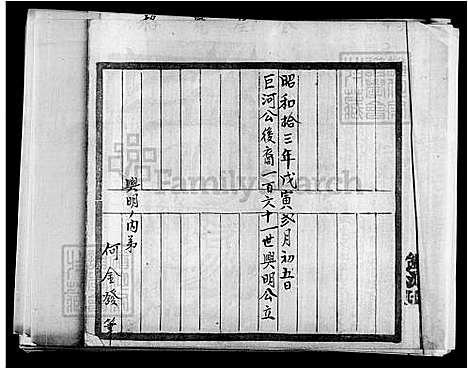 昭和拾三年戊寅弍月初五日
巨河公後裔一百六十一世興明公立
興明ノ內弟
何金發筆
FamilySearch